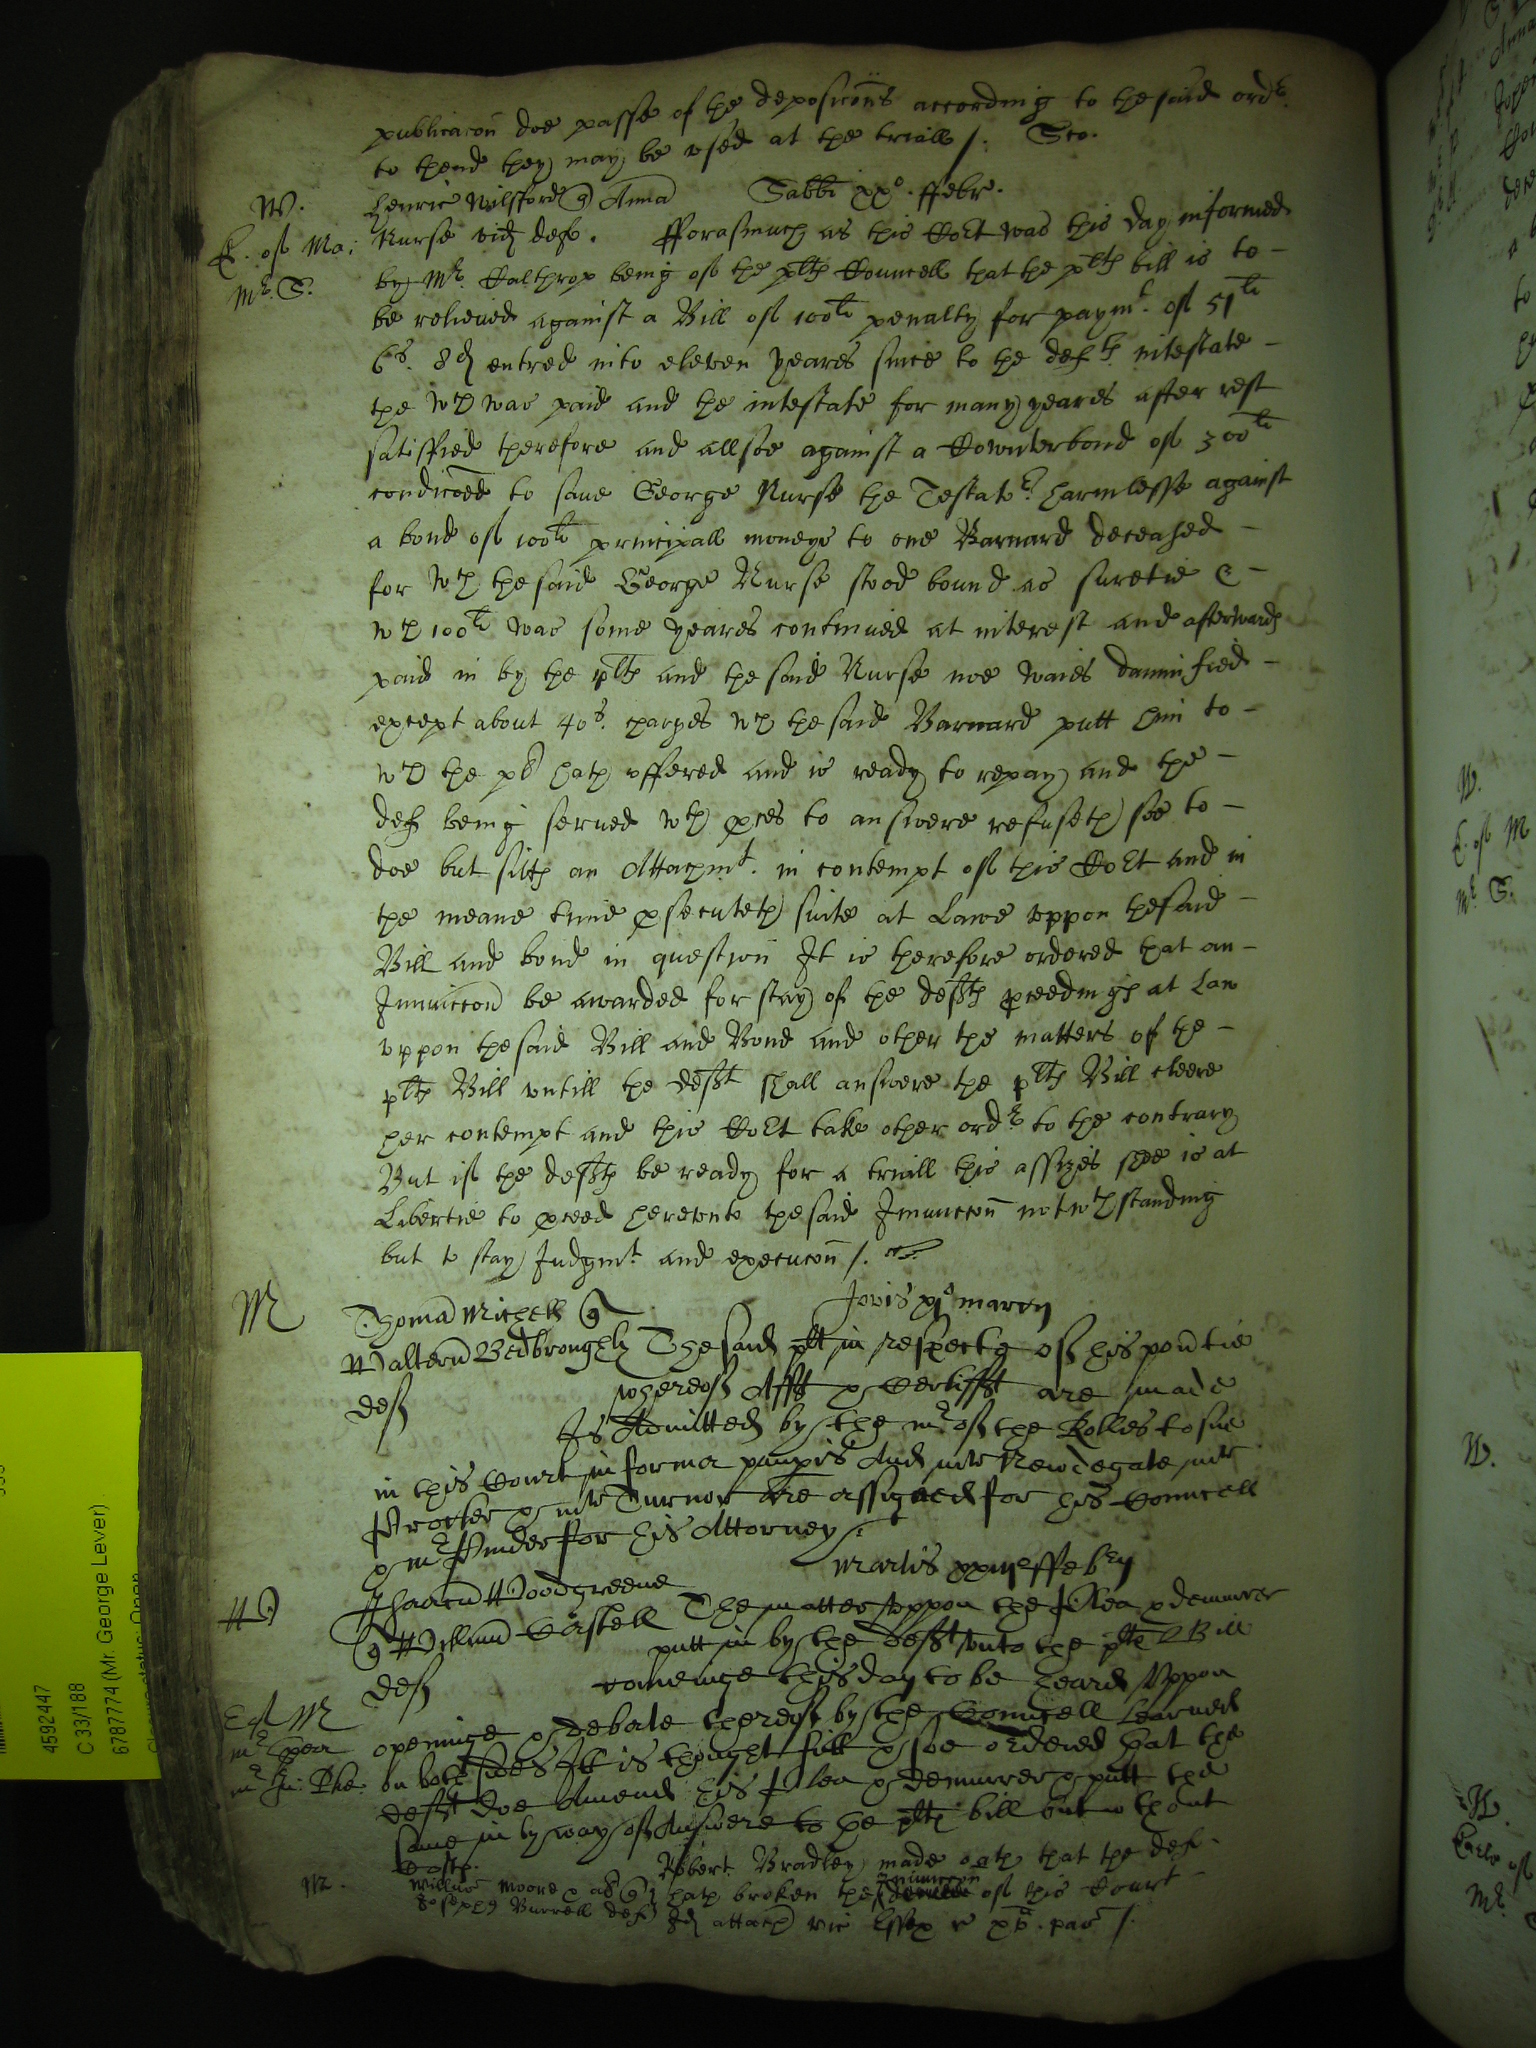 publicacon doe passe of the deposicons according to the said ordr.
to thend they may be vsed at the triall /. Sco.
W. Henric Wilsford Anna Sabbi xxo. ffebr.
E. of Ma: Nurse vid def. fforasmuch as this Court was this day informed
Mr. S. by Mr. Calthrop being of the plts Councell that the plts bill is to
be releiued against a Bill of 100li penalty for paymt. of 51li
6s. 8d entred into eleven yeares since to the defts intestate
the wch was paid and the intestate for many yeares after rest
satisfied therefore and allsoe against a Cownterbond of 300li
condicoed to saue George Nurse the Testator harmlesse against
a bond of 100li principall moneys to one Barnard deceased
for wch the said George Nurse stood bound as suretie &
wch 100li was some yeares continued at interest and afterwards
paid in by the plt and the said Nurse noe waies damnified
except about 40s. charges wch the said Barnard putt him to
wch the pl hath offered and is ready to repay and the
def being serued wth pces to answere refuseth soe to
doe but sitts an Attachmt. in contempt of this Court and in
the meane time psecuteth suite at Lawe vppon the said
Bill and bond in question It is therefore ordered that an
Iniunccon be awarded for stay of the defts pceedings at Law
vppon the said Bill and Bond and other the matters of the
plts Bill vntill the deft shall answere the plts Bill cleere
her contempt and this Court take other ordr to the contrary
But if the deft be ready for a triall this assizes shee is at
Libertie to pceed herevnto the said Iniunccon notwthstanding
but to stay Judgmt. and execucon /.
M Thomas Michell Jovis xjo marcij
Walterus Bedbroughe The said plt in respecte of his poutie
def whereof Afft & Certifft are made
Is Admitted by the mr of the Rolles to sue
in this Court in forma paupis And mr Newdegate mr
Procter & mr Turnor are assigned for his Councell
& mr Pinder for his Attorney /.
Martis xxiijo ffebrij
W Isaacus Woodgreene
Willmus Castell The matter vppon the Plea & demurrer
putt in by the deft vnto the plts Bill
def comeinge this day to be heard Vppon
E of M openinge & debate thereof by the Councell Learned
mr on both sides It is thought fitt & soe ordered that the
mr deft doe Amend his Plea & demurrer & putt the
same in by way of Answere to the plts bill but wthout
Costs.
M. Willus Moore & als Robert Bradley made oath that the def.
Josephus Burrell def hath broken the Iniunccon of this Court
Id attach vic Essex /.
4592447
C 33/188
6787774 (Mr. George Lever)